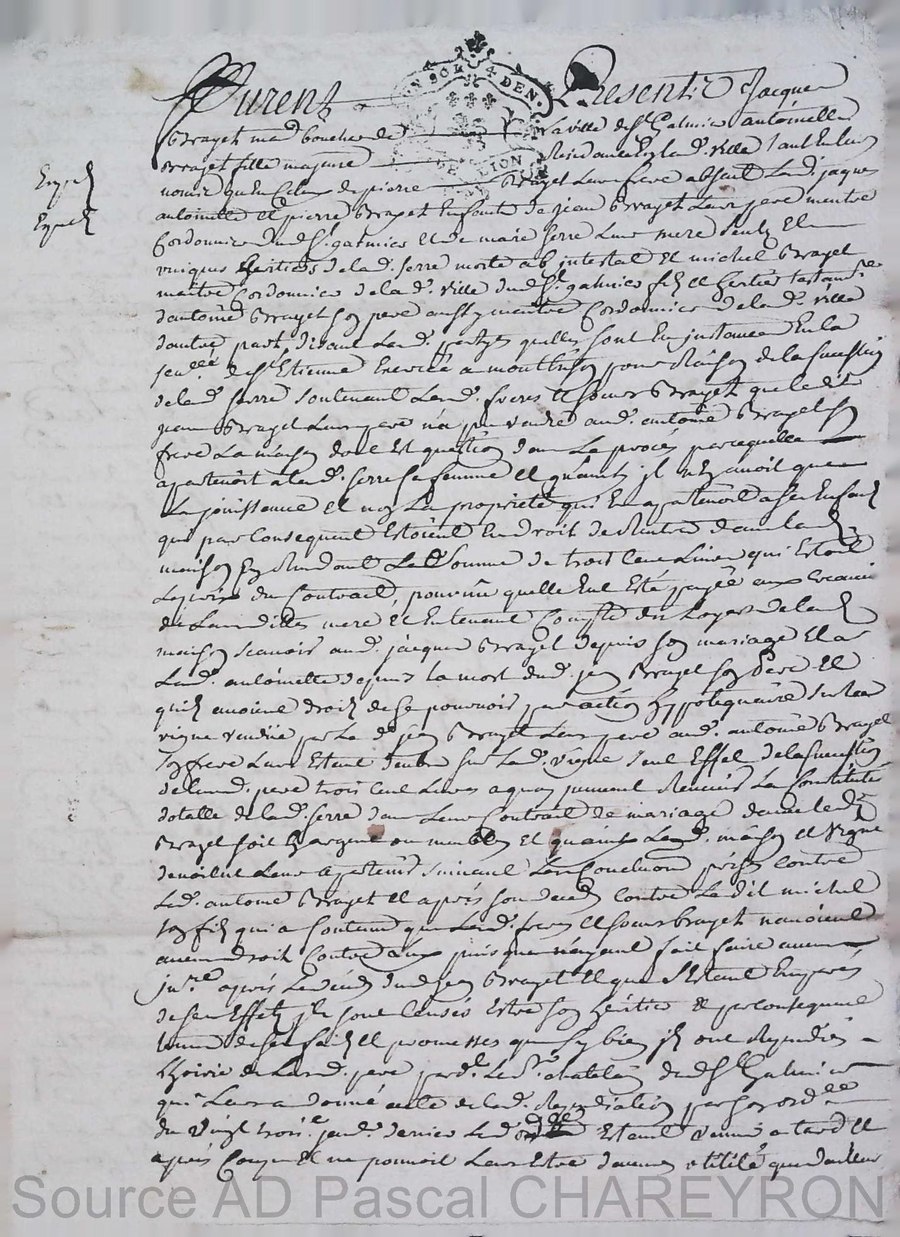 Furent Presents Jacques
Brayet mard boucher de la ville de St Galmier antoinette
Brayet fille majeure Residante en lad. ville tant en leur
nom qu'en celuy de pierre Brayet leur frere absent Lesd. jaques
antoinette et pierre Brayet enfants de jean Brayet leur pere
Cordonnier dud. St galmier et de marie serre leur mere et
uniques heritiers de lad. serre morte ab intestat et michel Brayet
maitre Cordonnier de lad. ville dud. St galmier fils et heritier
d'antoine Brayet son pere aussy Cordonnier de lad. ville
d'autre part, disant Lesd. partyes quelles sont en instance en la
de St Etienne a montbrison pour Raison de la succession
de lad. serre soutenant Lesd. freres et soeur Brayet que ledit
jean Brayet leur pere n'a pu vendre aud. antoine Brayet son
frere La maison dont est question dans le procès parcequelle
apartenoit a lad. serre sa femme et quand il n'en avoit que
La jouissance et non la proprieté qui en apartenoit a ses enfants
que par consequent estoient en droit de Rentrer dans lad.
maison en Rendant La somme de trois cent Livres qui estoit
Le prix du Contract, pourvu quelle eut esté payée aux
de Leurdittes mere et en tenant Compte des Loyers de lad.
maison scavoir aud. jacques Brayet depuis son mariage et a
Lad. antoinette depuis la mort dud. jean Brayet son pere et
quils avoient droit de se pourvoir par action hypotequaire sur la
vigne vendue par Le d. jean Brayet Leur pere aud. antoine Brayet
son frere Leur estant deub sur lad. vigne de la succession
de leurd. pere trois cent Livres a quoy La Constitution
dotalle de lad. serre dans Leur Contract de mariage avec led.
Brayet soit en argent ou meubles et quainsy Lesd. maison et vigne
devoient Leur apartenir suivant Les Conclusions prises contre
Led. antoine Brayet et après son deceds contre Ledit michel
son fils qui a soutenu que Lesd. freres et soeur brayet navoient
aucun droit Contre eux puisque n'ayant fait faire aucun
jnre après Le deceds dud. jean Brayet et que s'estant emparés
de ses Effets jls sont Censés estre son heritier et par consequent
tenus de ses faits et promesses que sy bien jls ont Repudiés
Lhoirie de Leurd. pere pardt. Le Sr. chatelain dud. St Galmier
qui Leur a donné acte de lad. Repudiation par son ordce
du vingt trois dernier Led. Estant venue a tard et
après Coup et ne pouvoit Leur Estre d'aucune utilité que d'ailleurs
Expedié
Expedié
SOL 4 DEN.
LION
Source AD Pascal CHAREYRON